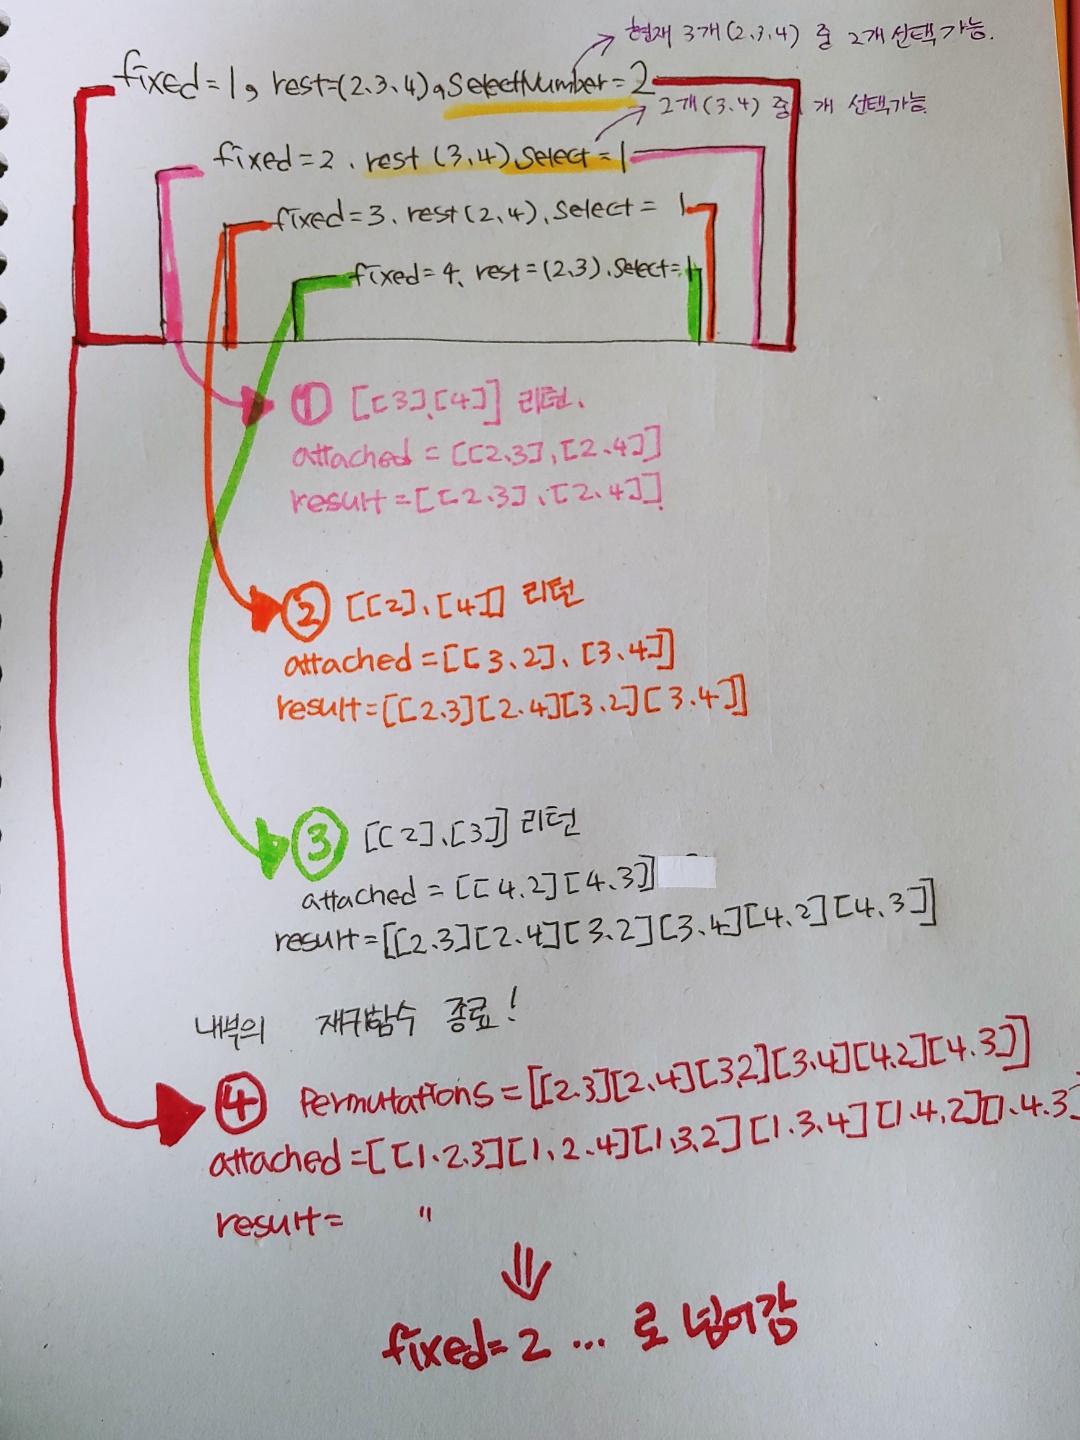 현재 3개(2,3,4) 중 2개 선택가능.
fixed=1, rest=(2.3.4), SelectNumber=2
2개(3.4) 중 1개 선택가능.
fixed=2. rest (3,4) Select=1
fixed=3. rest(2,4), Select= 1
fixed=4. rest=(2.3). Select=1
① [[3].[4]] 리턴.
attached = [[2.3],[2.4]]
result=[[2.3].[2.4]]
② [[2].[4]] 리턴
attached=[[3.2].[3.4]]
result=[[2.3][2.4][3.2][3.4]]
③ [[2].[3]] 리턴
attached = [[4.2][4.3]]
result=[[2.3][2.4][3.2][3.4][4.2][4.3]]
내부의 재귀함수 종료!
④ Permutations=[[2.3][2.4][3.2][3.4][4.2][4.3]]
attached=[[1.2.3][1.2.4][1.3.2][1.3.4][1.4.2][1.4.3]
result= "
⇓
fixed=2 ... 로 넘어감